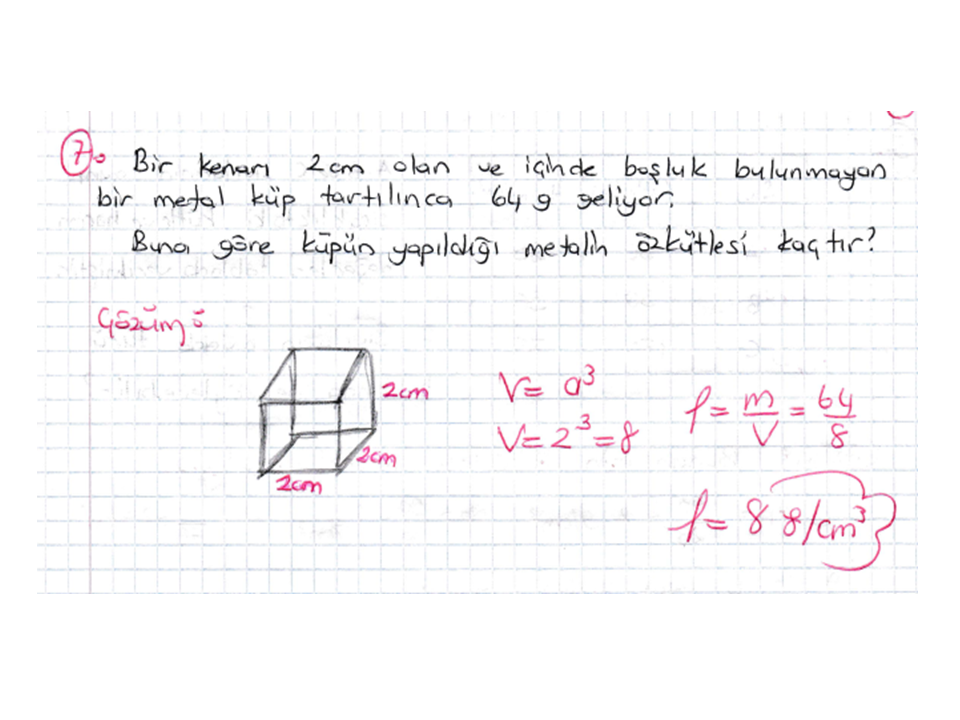 7. Bir kenarı 2 cm olan ve içinde boşluk bulunmayan
bir metal küp tartılınca 64 g geliyor.
Buna göre küpün yapıldığı metalin özkütlesi kaçtır?
Çözüm:
2cm
2cm
2cm
V = a³
V = 2³ = 8
ρ = m/V = 64/8
ρ = 8 g/cm³